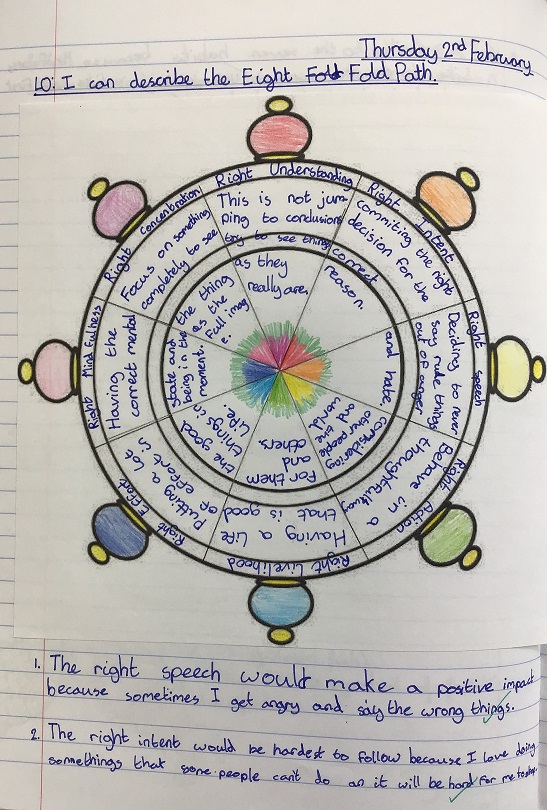 Thursday 2nd February
LO: I can describe the Eight Fold Path.
Right Understanding
This is not jum
ping to conclusions
try to see things
as they
really are.
Right Intent
commiting the right
decision for the
correct
reason.
Right speech
Deciding to never
say rude things
out of anger
and hate
Right Action
Behave in a
thoughtful way
considering
other people
and the
world
Right Livelihood
Having a life
that is good
for them
and
others.
Right Effort
Putting a lot
of effort is
the good
things in
life.
Right Mindfulness
Having the
correct mental
state and
being in the
moment.
Right Concentration
Focus on something
completely to see
the thing
as the
full imag
e.
1. The right speech would make a positive impact
because sometimes I get angry and say the wrong things.
2. The right intent would be hardest to follow because I love doing
somethings that some people can't do an it will be hard for me to stop.